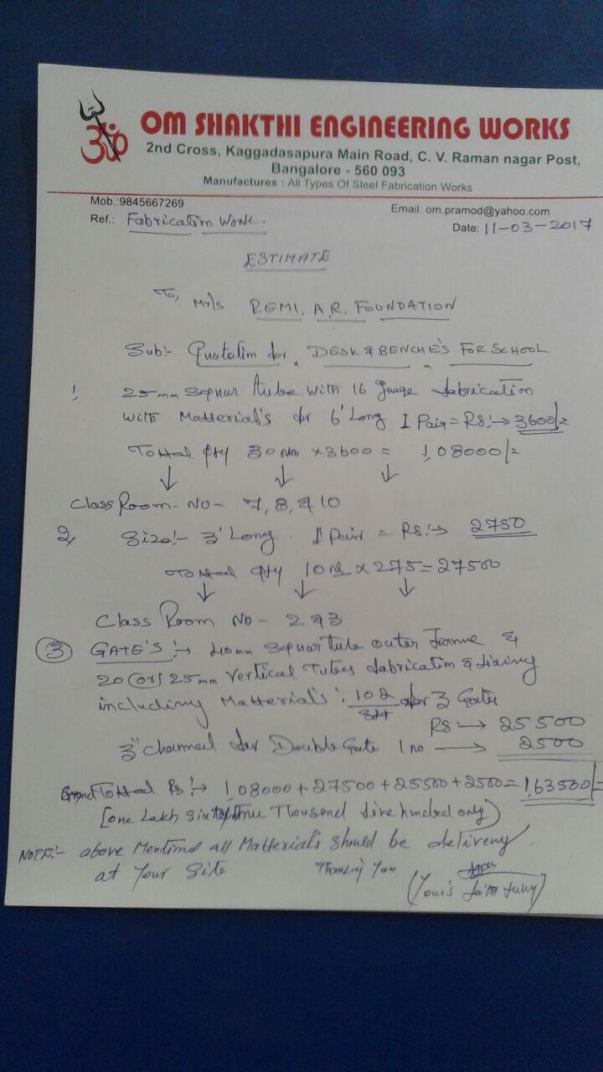 OM SHAKTHI ENGINEERING WORKS
2nd Cross, Kaggadasapura Main Road, C. V. Raman nagar Post,
Bangalore - 560 093
Manufactures : All Types Of Steel Fabrication Works
Mob.:9845667269
Email: om.pramod@yahoo.com
Ref.: Fabrication Work.
Date: 11-03-2017
ESTIMATE
To, M/s REMI. A.R. FOUNDATION
Sub:- Quatation for DESK & BENCHE'S FOR SCHOOL
1 25mm Squar tube with 16 guage fabrication
with Matterial's for 6' Long 1 Pair = RS:→ 3600/-
Tottal qty 30 No x 3600 = 1,08000/-
Class Room - No - 7, 8, & 10
2, Size:- 3' Long. 1 Pair = RS:→ 2750
Tottal qty 10 x 275 = 27500
Class Room No - 2 & 3
3 GATE'S :→ 40mm Squar tube outer frame &
20 (or) 25mm Vertical Tubes fabrication & fixing
including Matterial's : 102 for 3 Gates
RS → 25500
3" Channel for Double Gate 1 no → 2500
Grand Tottal Rs :→ 1,08000 + 27500 + 25500 + 2500 = 1,63500/-
[One Lakh Sixty three Thousand five hundred only)
NOTE:- above Mentiond all Matterial's Should be delivery
at Your Site Thanking You
(Your's faith fully)